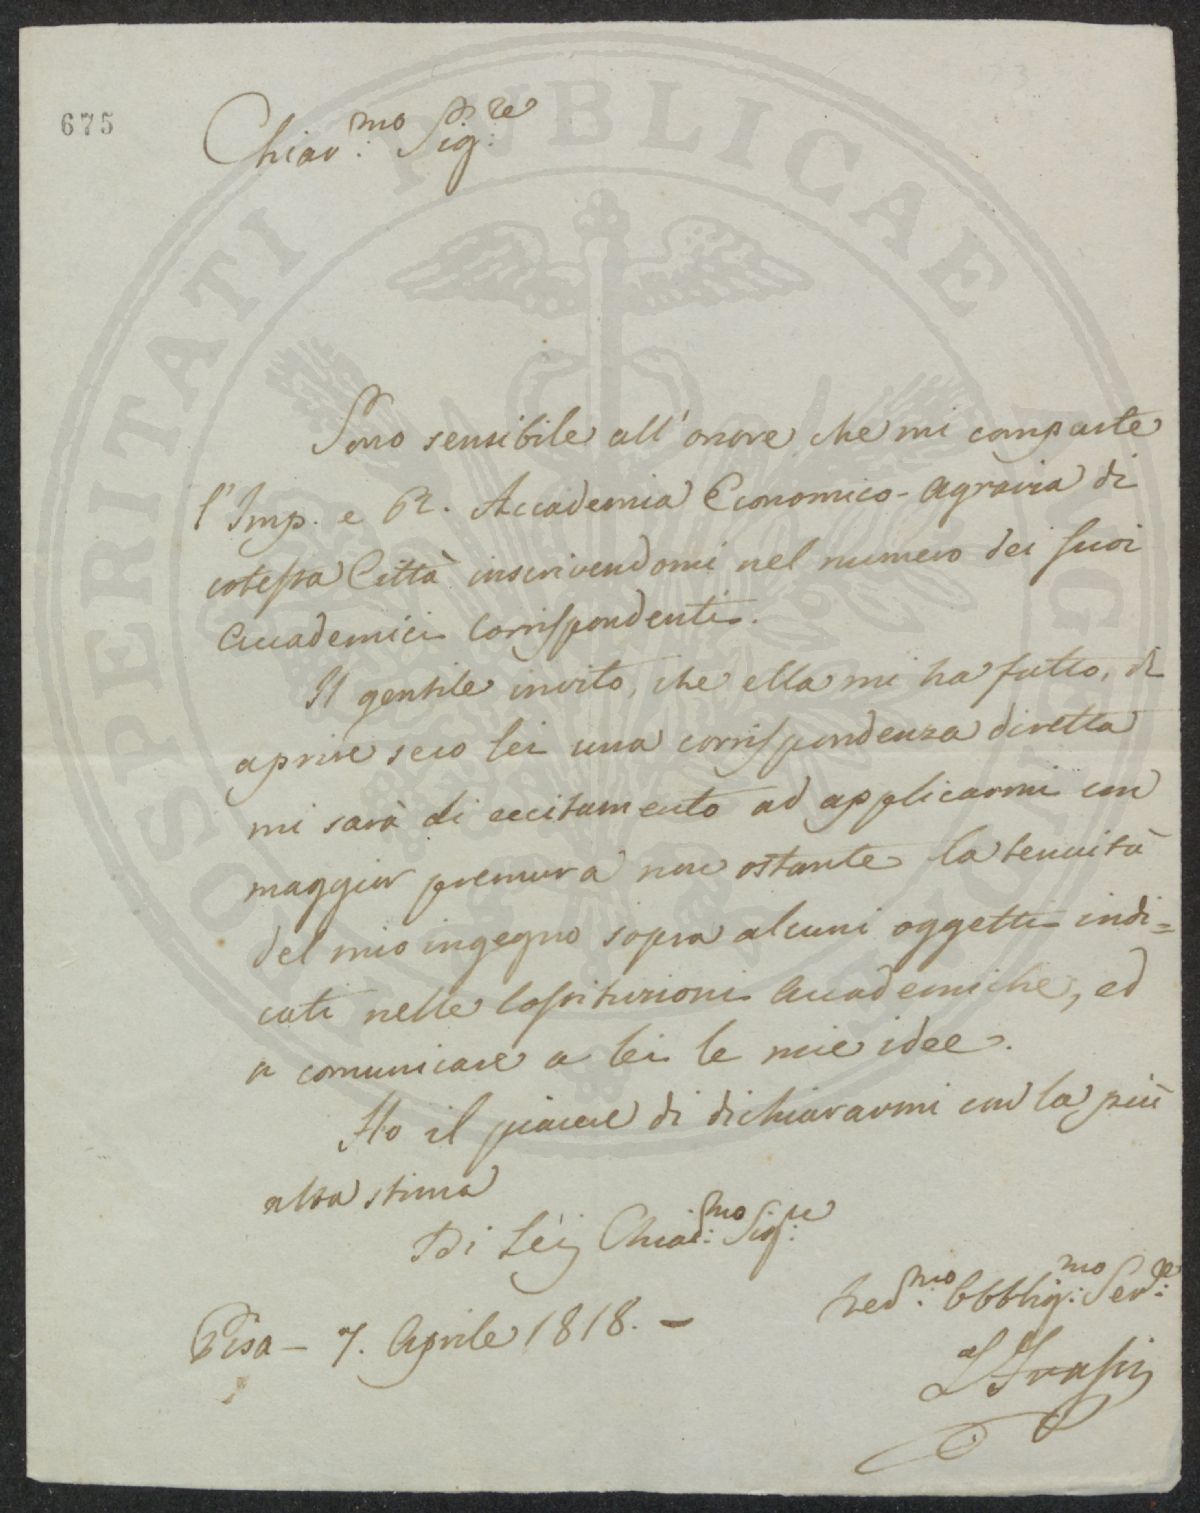 675
Chiar.mo Sig.re
Sono sensibile all'onore che mi comparte
l'Imp. e R. Accademia Economico-Agraria di
cotessa Città inscrivendomi nel numero dei suoi
Accademici Corrispondenti.
Il gentile invito, che ella mi ha fatto, di
aprire seco lei una corrispondenza diretta
mi sarà di eccitamento ad applicarmi con
maggior premura non ostante la tenuità
del mio ingegno sopra alcuni oggetti indi=
cati nelle Costituzioni Accademiche, ed
a comunicare a lei le mie idee.
Ho il piacere di dichiararmi con la più
alta stima
Di Lei Chiar.mo Sig.re
Pisa - 7. Aprile 1818. -
Dev.mo Obbblig.mo Ser.e
PROSPERITATI PUBLICAE AUGENDAE